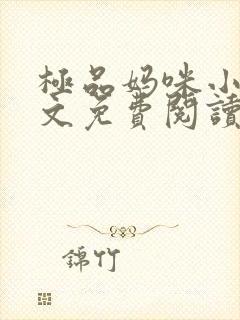 極品妈咪小
文免費閱讀
錦竹